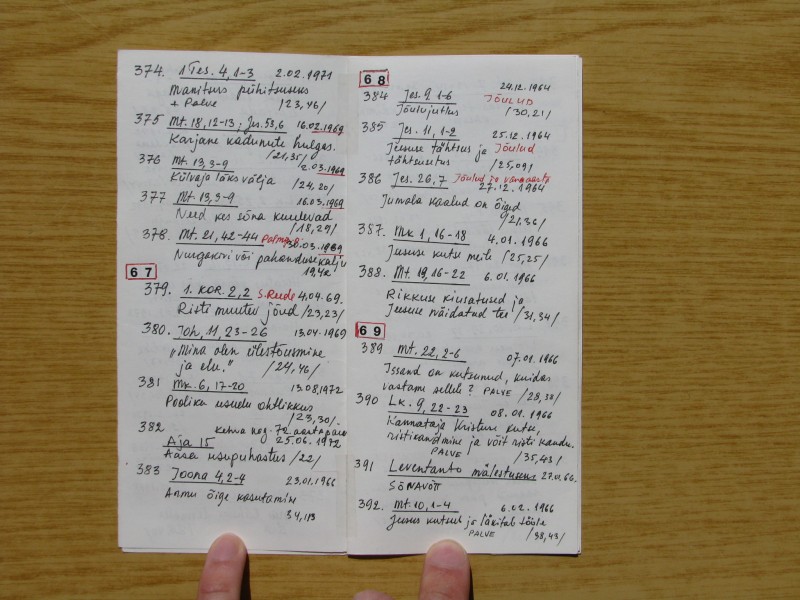 374. 1 Tes. 4, 1-3 2.02.1971
Manitsus pühitsuseks
+ Palve /23,46/
375 Mt. 18, 12-13; Jes. 53,6 16.02.1969
Karjane kadunute hulgas.
/21,35/
376 Mt. 13, 3-9 2.03.1969
Külvaja läks välja /24,20/
377 Mt. 13, 3-9 16.03.1969
Need kes sõna kuulevad
/18,29/
378. Mt. 21, 42-44 30.03.1969
Nurgakivi või pahanduse kalju
67
379. 1. KOR. 2,2 S. Reede 4.04.69.
Risti muutev jõud /23,23/
380. Joh, 11, 23-26 13.04.1969
"Mina olen ülestõusmine
ja elu." /24,46/
381 Mk. 6, 17-20 13.08.1972
Pooliku usudu ohtlikkus
/23,30/.
382 kehva nog. 72. aastapäev
Aja 15 25.06.1972
Aasa usupuhastus /22/
383 Joona 4, 2-4 23.01.1966
Armu õige kasutamine
68
24.12.1964
384 Jes. 9, 1-6 JÕULUD
Jõulujutlus /30,21/
385 Jes. 11, 1-2 25.12.1964
Jeesuse tähtsus ja Jõulud
tähtsusetus /25,09/
386 Jes. 26,7 Jõulud ja vanaaasta
27.12.1964
Jumala kaalud on õiged
/21,36/
387. Mk 1, 16-18 4.01.1966
Jeesuse kutse meile /25,25/
388. Mt. 19, 16-22 6.01.1966
Rikkuse kiusatused ja
Jeesuse näidatud tee /31,34/
69
389 Mt. 22, 2-6 07.01.1966
Issand on kutsunud, kuidas
vastame sellele? PALVE /28,38/
390 Lk. 9, 22-23 08.01.1966
Kannataja Kristuse kutse,
ristikandmine ja võit risti kaudu.
PALVE /35,43/
391 Leventanto mälestuseks 27.01.66.
SÕNAVÕTT
392. Mt. 10, 1-4 6.02.1966
Jeesus kutsub ja läkitab tööle
PALVE /38,43/